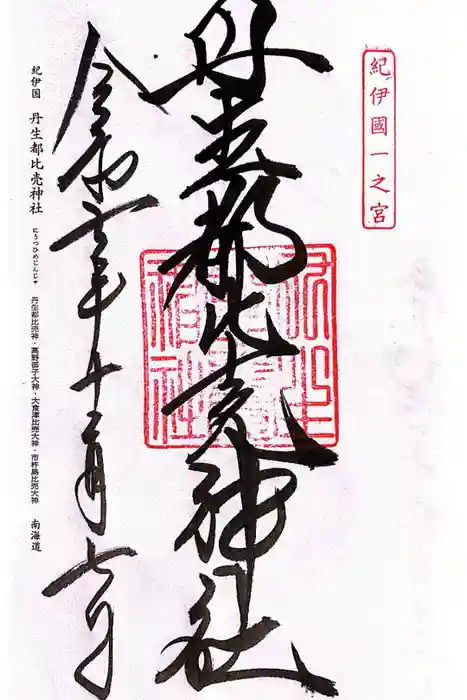 紀伊國一之宮
丹生都比売神社
令和元年十二月七日
紀伊国 丹生都比売神社 にうつひめじんじゃ 丹生都比売大神・高野御子大神・大食津比売大神・市杵島比売大神 南海道